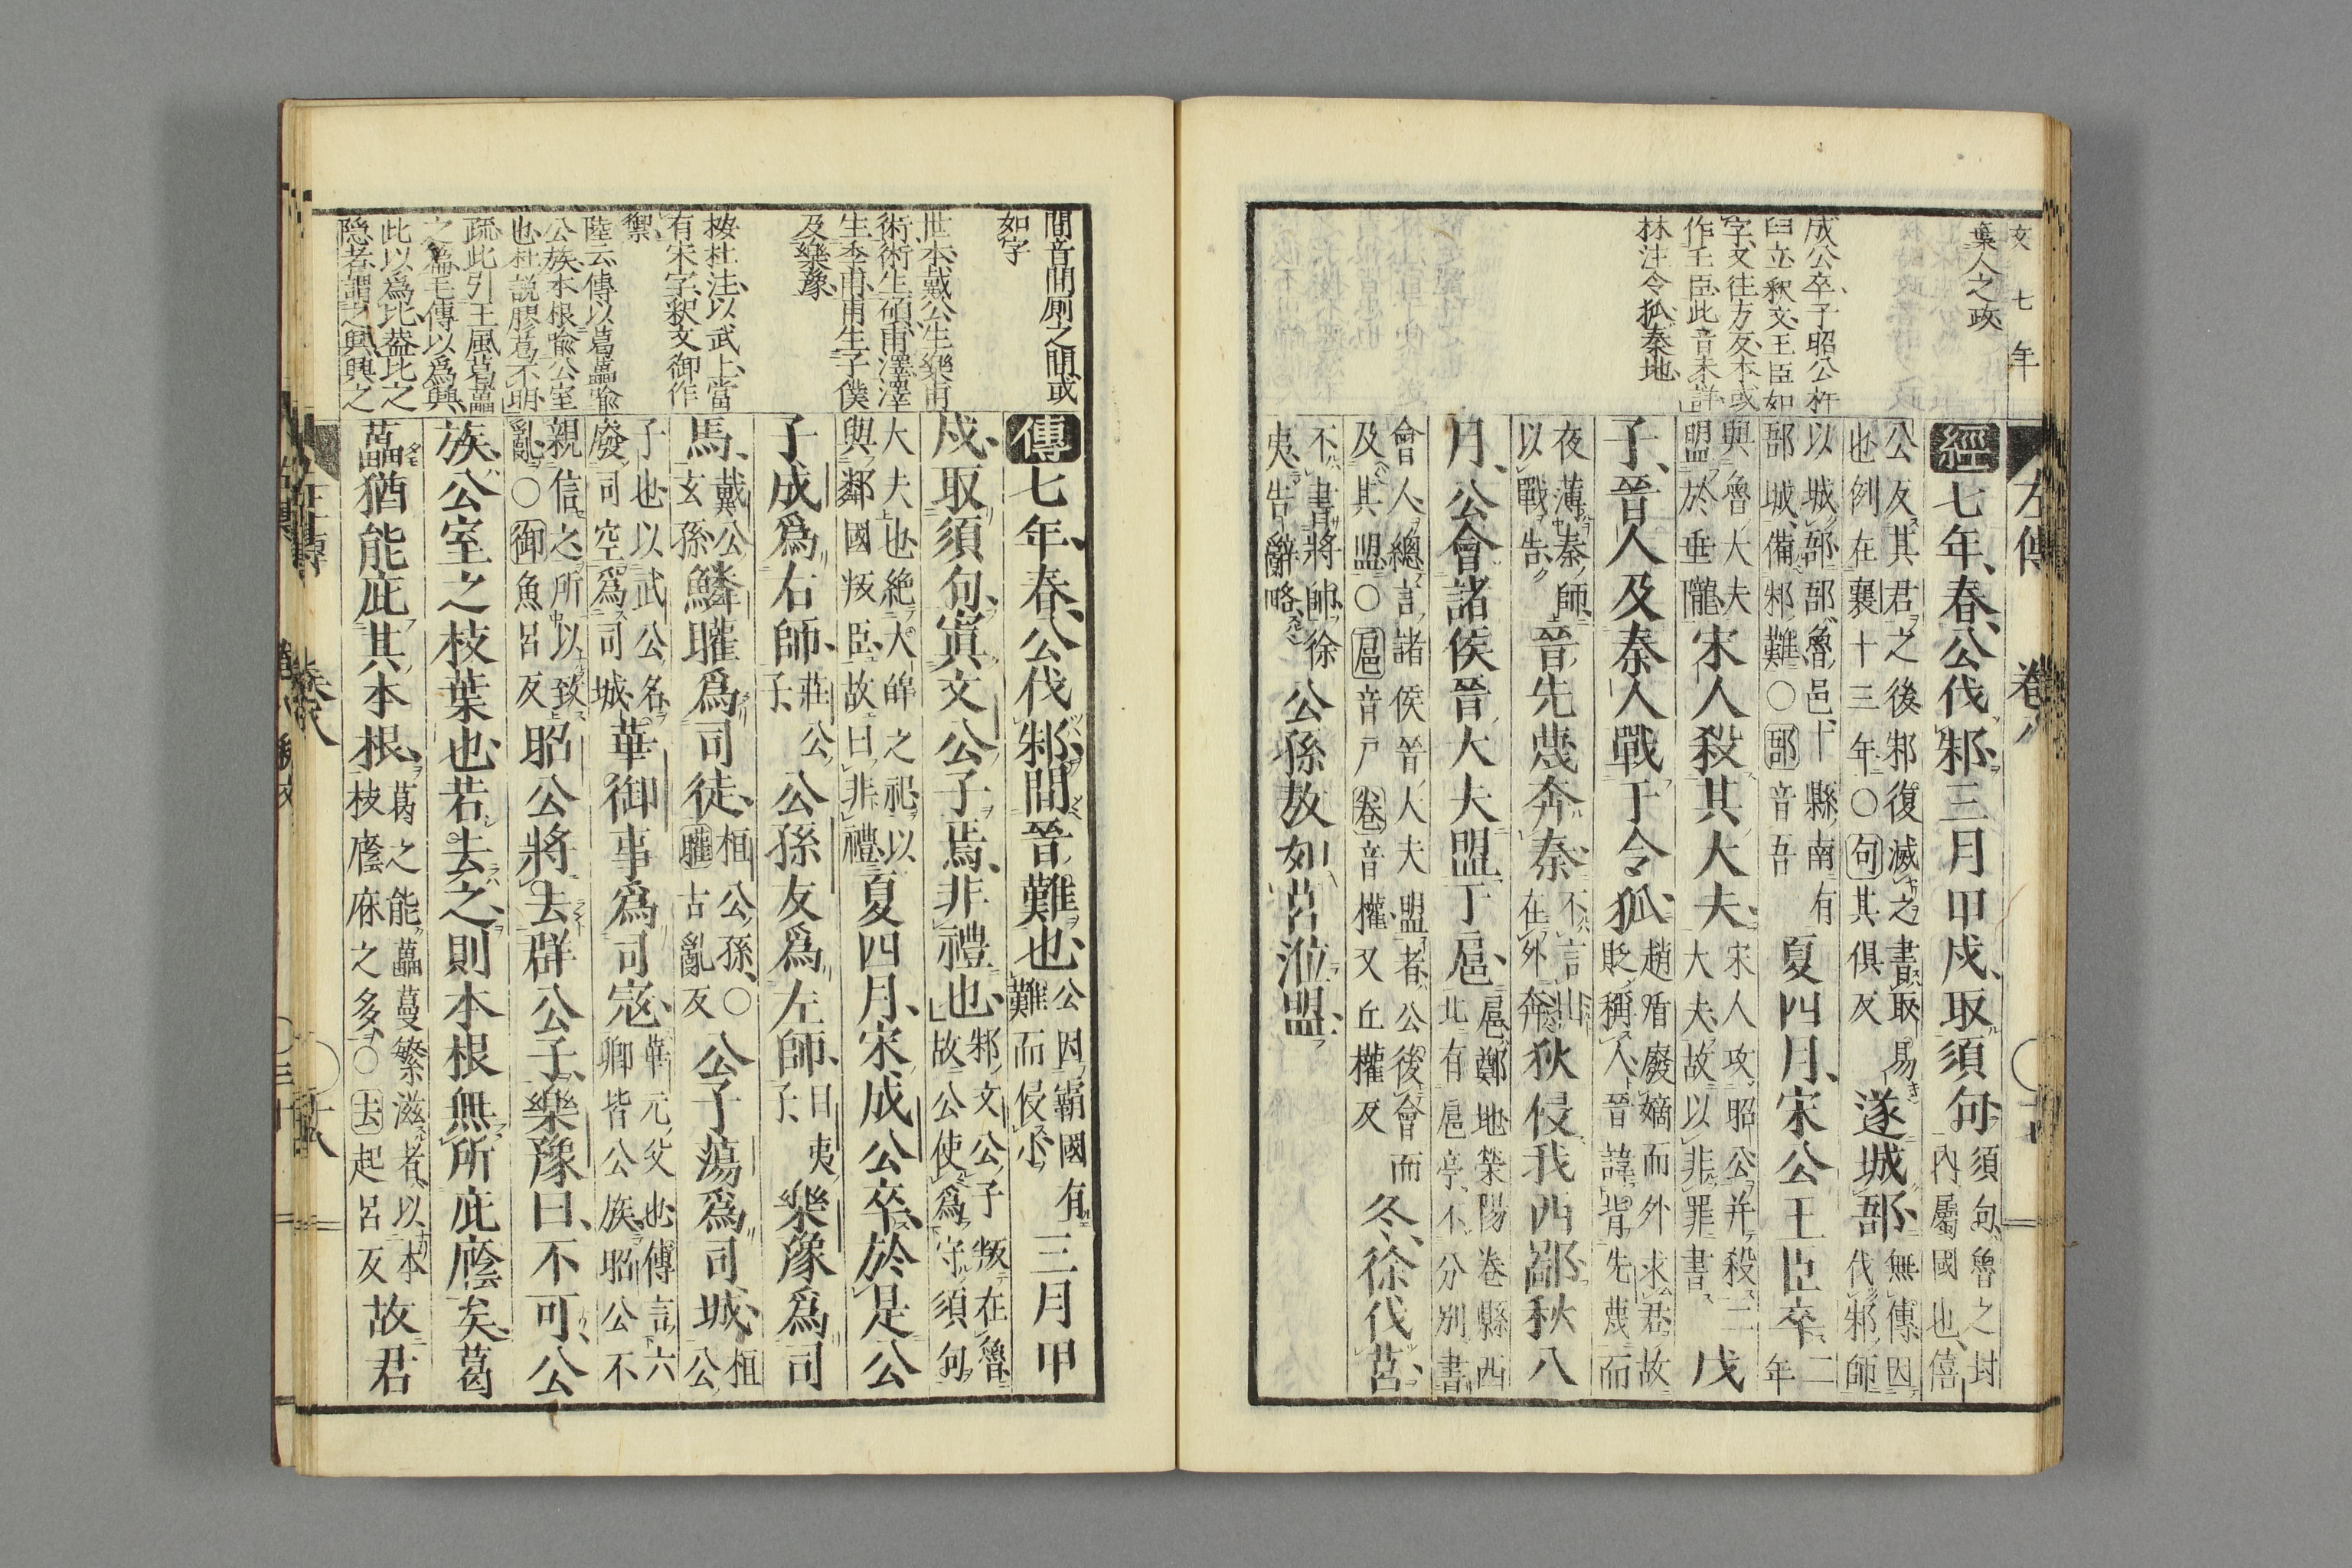 文七年
棄人之政
成公卒子昭公杵
臼立釈文王臣如
字又往方反本或
作壬臣此音未詳
林注令狐秦地
左傳 卷八
經七年春公伐邾三月甲戌取須句須句魯之封内屬國也僖
公反其君之後邾復滅之書取易也例在襄十三年○句其俱反遂城郚無傳因伐邾師
以城郚郚魯邑卞縣南有郚城備邾難○郚音吾夏四月宋公王臣卒二年
與魯大夫盟於垂隴宋人殺其大夫宋人攻昭公并殺二大夫故以非罪書戊
子晉人及秦人戰于令狐趙盾廢嫡而外求君故貶稱人晉諱背先蔑而
夜薄秦師以戰告晉先蔑奔秦不言出在外奔狄侵我西鄙秋八
月公會諸侯晉大夫盟于扈扈鄭地滎陽卷縣西北有扈亭不分別書
會人總言諸侯晉人夫盟者公後會而及其盟○扈音戸卷音權又丘權反冬徐伐莒
不書將帥徐夷告辭略公孫敖如莒涖盟
間音間厠之間或
如字
世本戴公生樂甫
術術生碩甫澤澤
生季甫甫生子僕
及樂豫
按杜注以武上當
有宋字釈文御作
禦
陸云傳以葛藟喩
公族本根喩公室
也杜説膠葛不明
疏此引王風葛藟
之篇毛傳以爲興
此以爲比蓋比之
隠者謂之興興之
傳七年春公伐邾間晉難也公因霸國有難而侵小三月甲
戌取須句寘文公子焉非禮也邾文公子叛在魯故公使爲守須句
大夫也絶大皥之祀以與鄰國叛臣故曰非禮夏四月宋成公卒於是公
子成爲右師莊公子公孫友爲左師目夷子樂豫爲司
馬戴公玄孫鱗矔爲司徒桓公孫○矔古亂反公子蕩爲司城桓公
子也以武公名廢司空爲司城華御事爲司寇華元父也傳言六卿皆公族昭公不
親信之所以致亂○御魚呂反昭公將去群公子樂豫曰不可公
族公室之枝葉也若去之則本根無所庇廕矣葛
藟猶能庇其本根葛之能藟蔓繁滋者以本枝廕庥之多○去起呂反故君